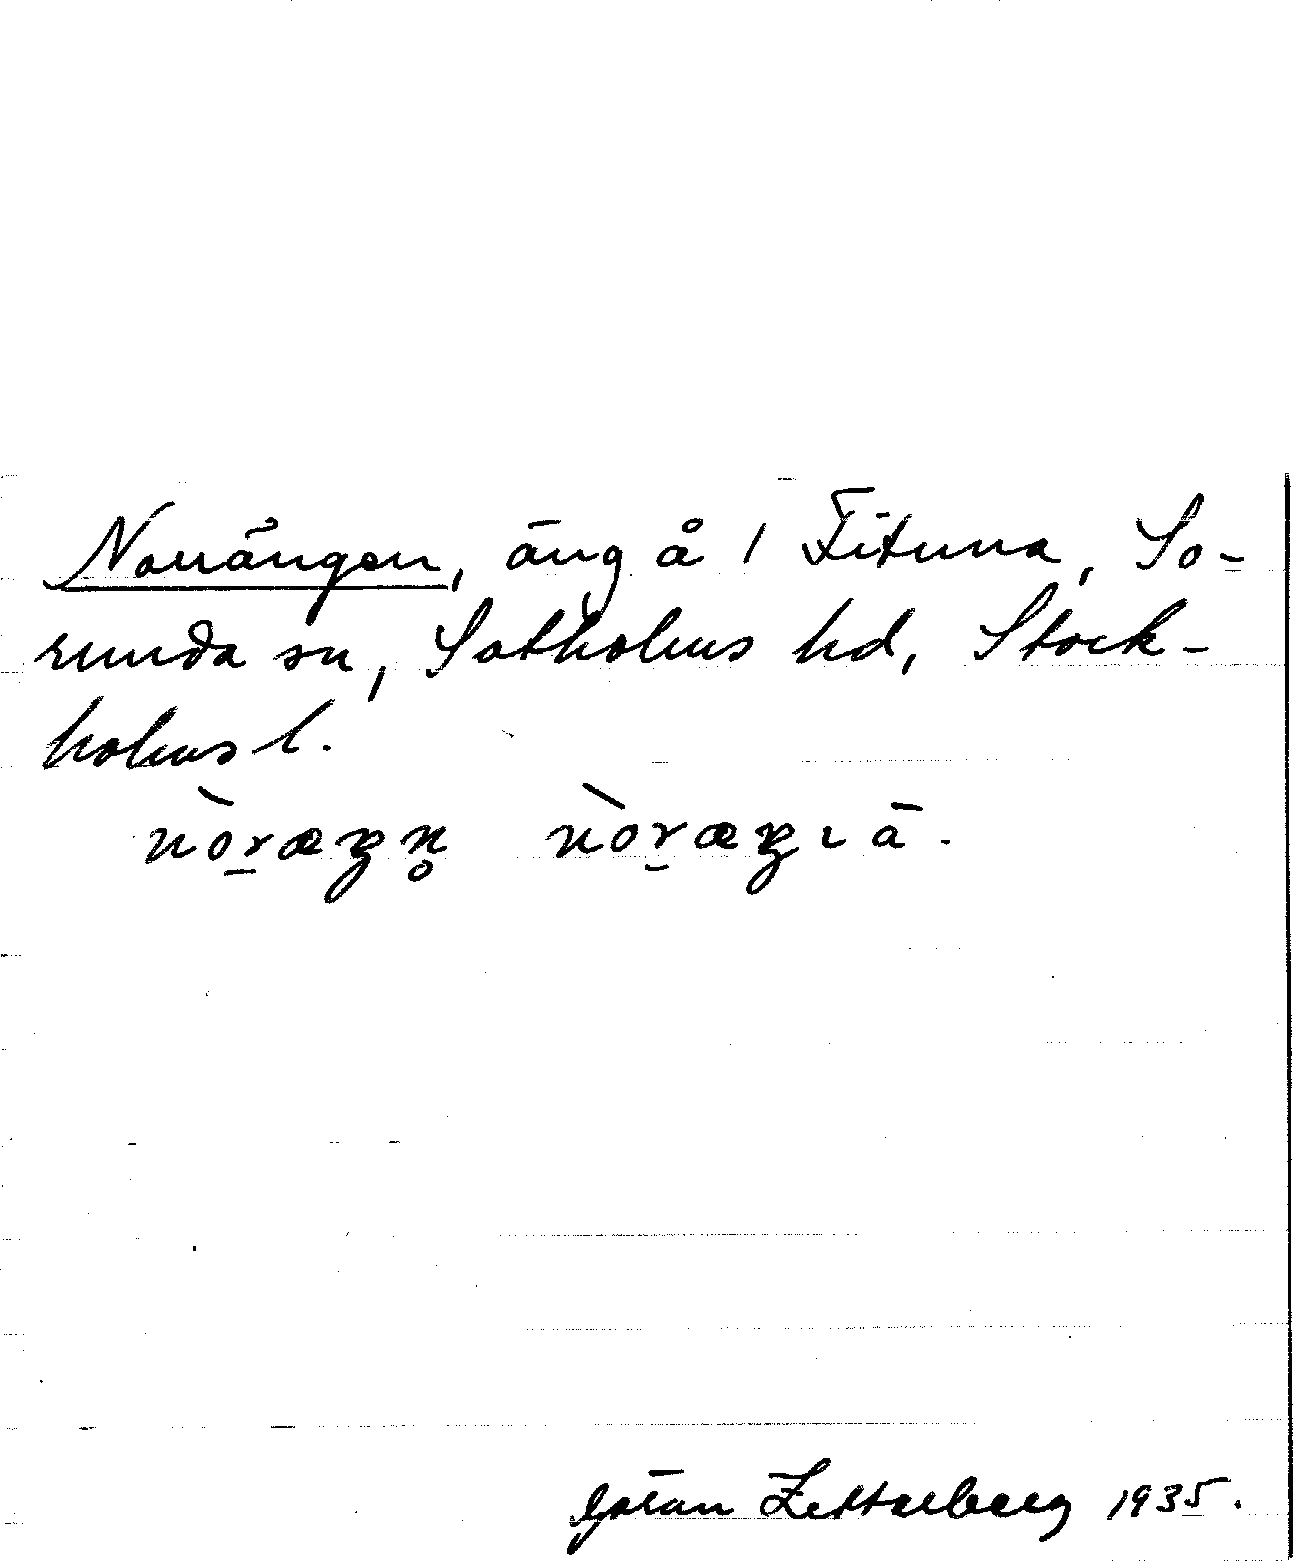 Norrängen, äng å 1 Fituna, So-
runda sn, Sotholms hd, Stock-
holms l.
nòræŋn̥ nòræŋɩä.
Göran Zetterberg 1935.